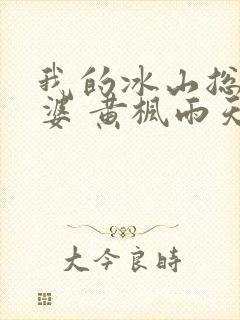 我的冰山总
婆 黄枫雨天
大今良时